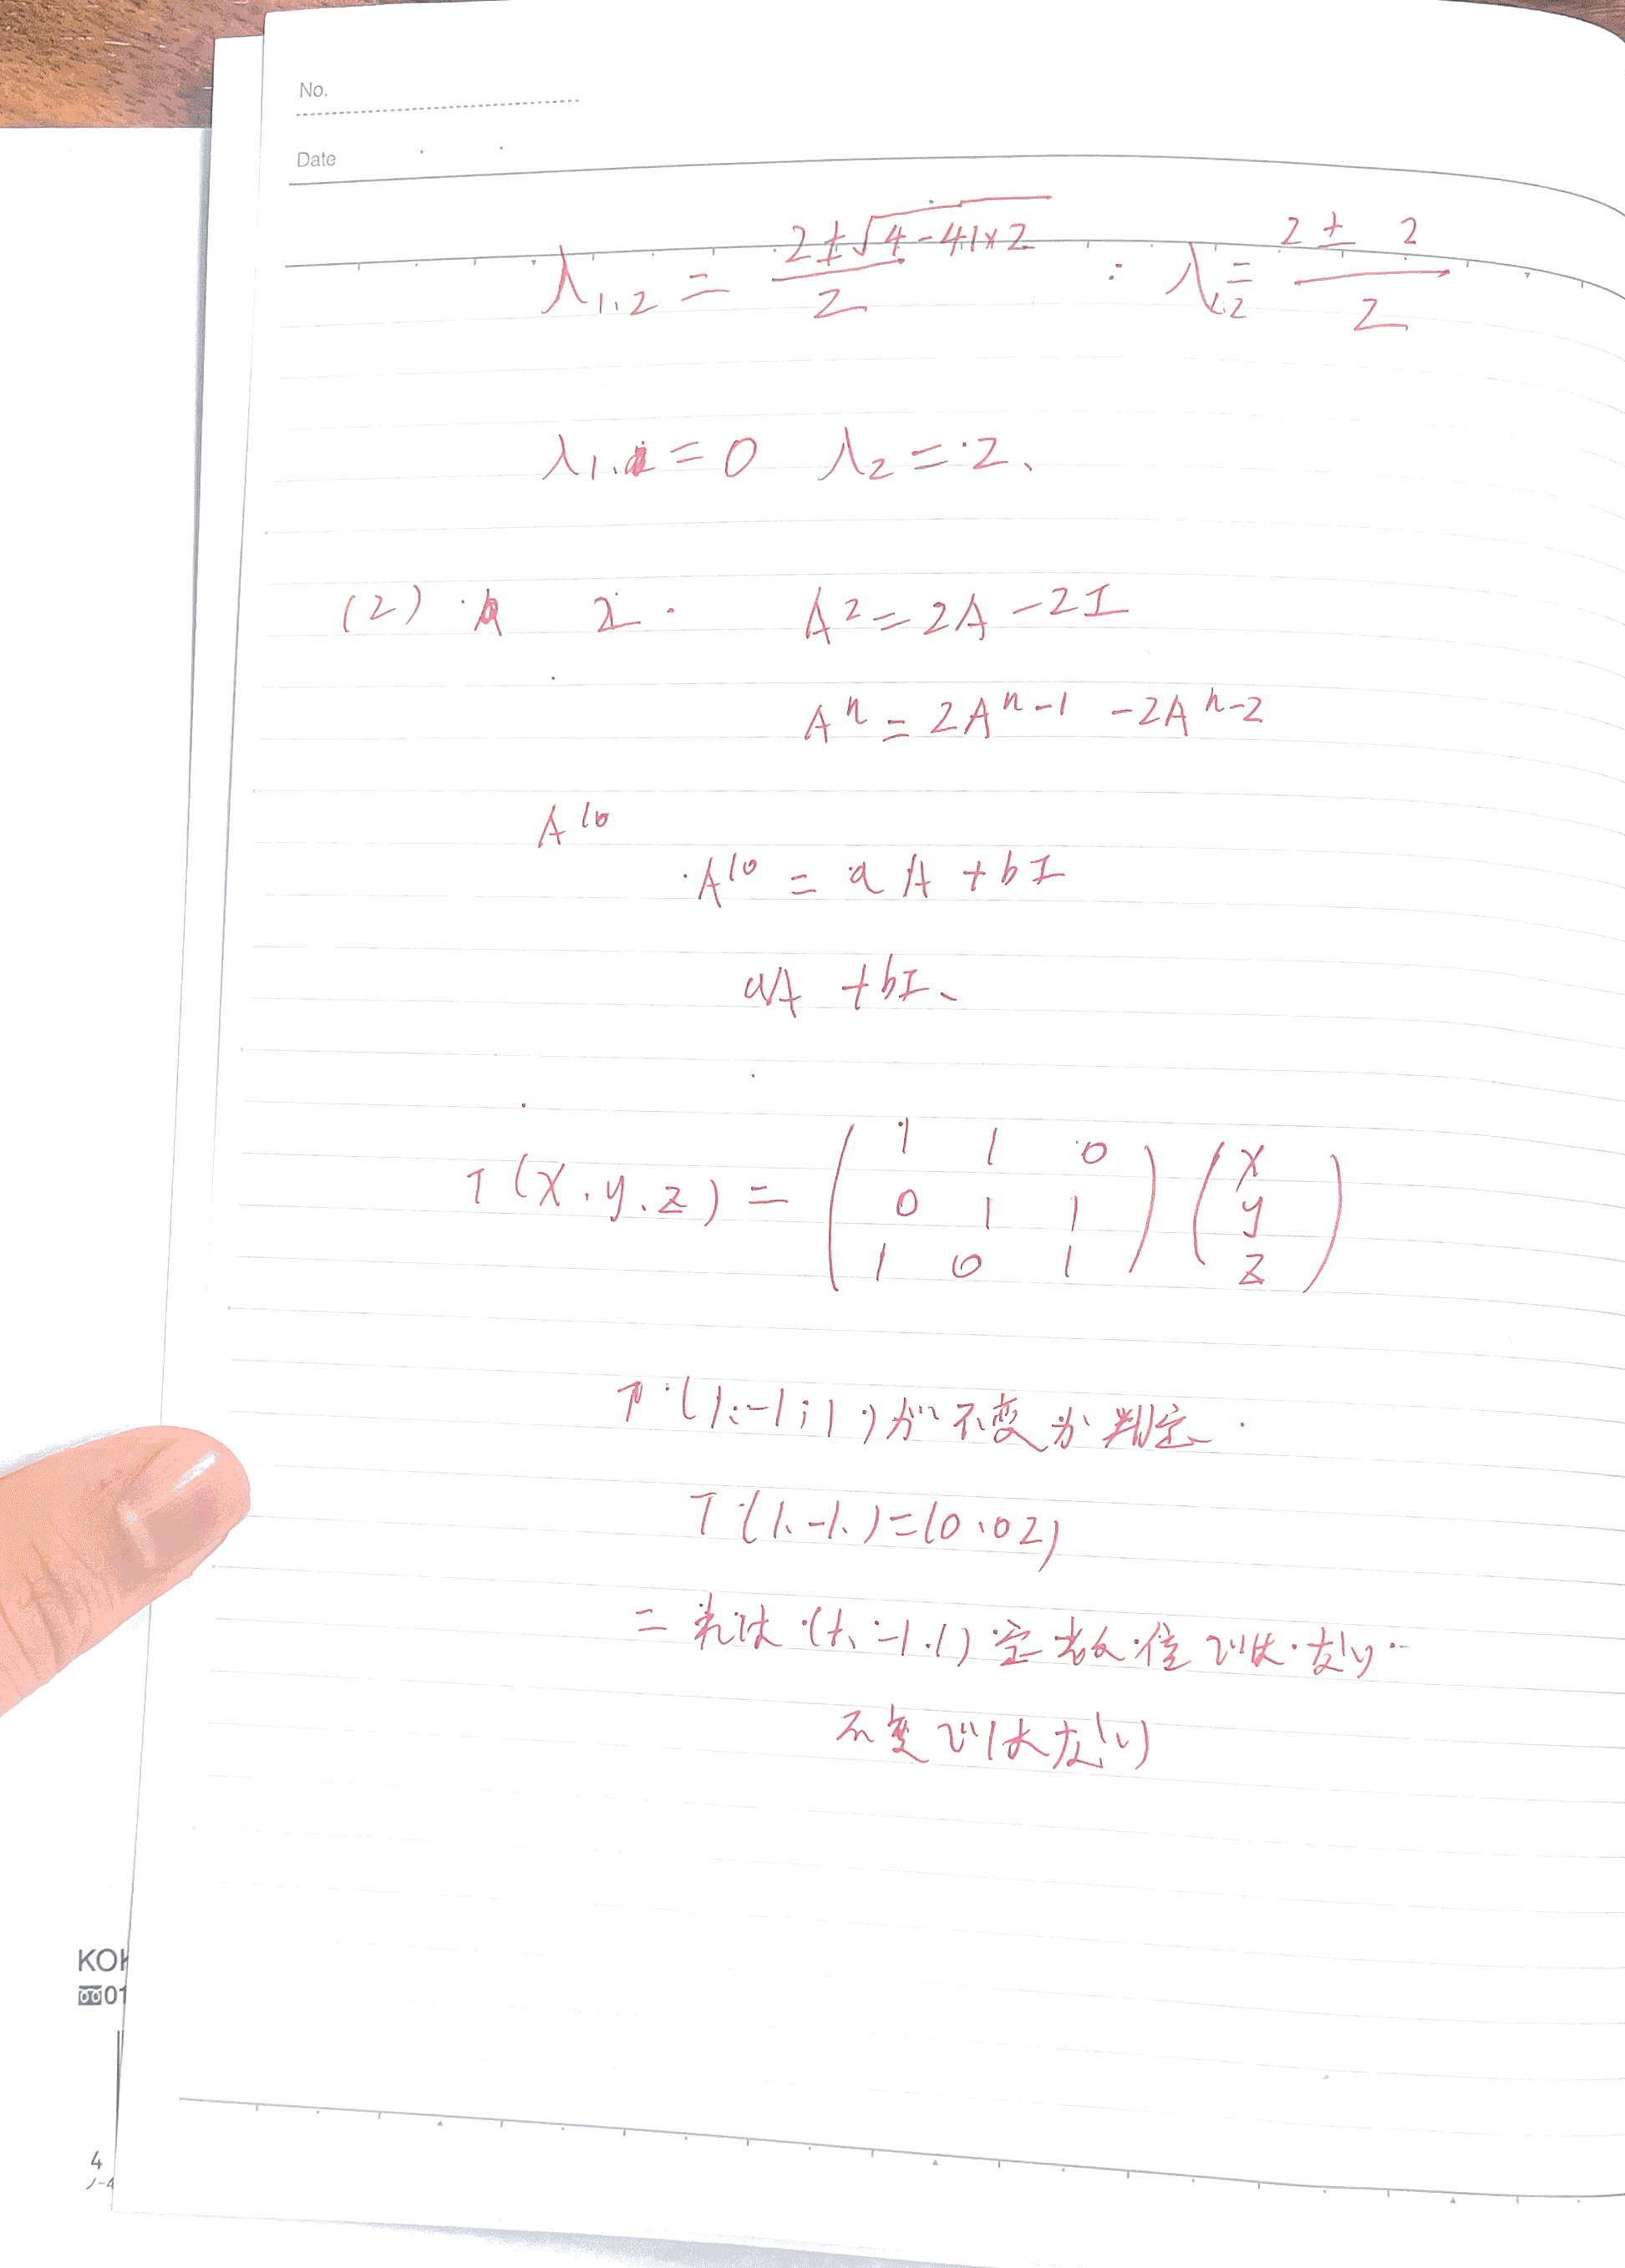 No.
Date
λ1,2 = (2±√(4-4·1×2))/2 : λ1,2 = (2± 2)/2
λ1. = 0 λ2 = 2、
(2) A² = 2A -2I
Aⁿ = 2Aⁿ⁻¹ -2Aⁿ⁻²
A¹⁰
A¹⁰ = aA + bI
aA + bI、
T(x, y, z) = (1 1 0; 0 1 1; 1 0 1)(x; y; z)
T(1, -1, 1)が不変か判定
T(1, -1, )=(0, 0 2)
これは(1, -1, 1)定数倍ではない
不変ではない
KOK
01
4
ノ-4